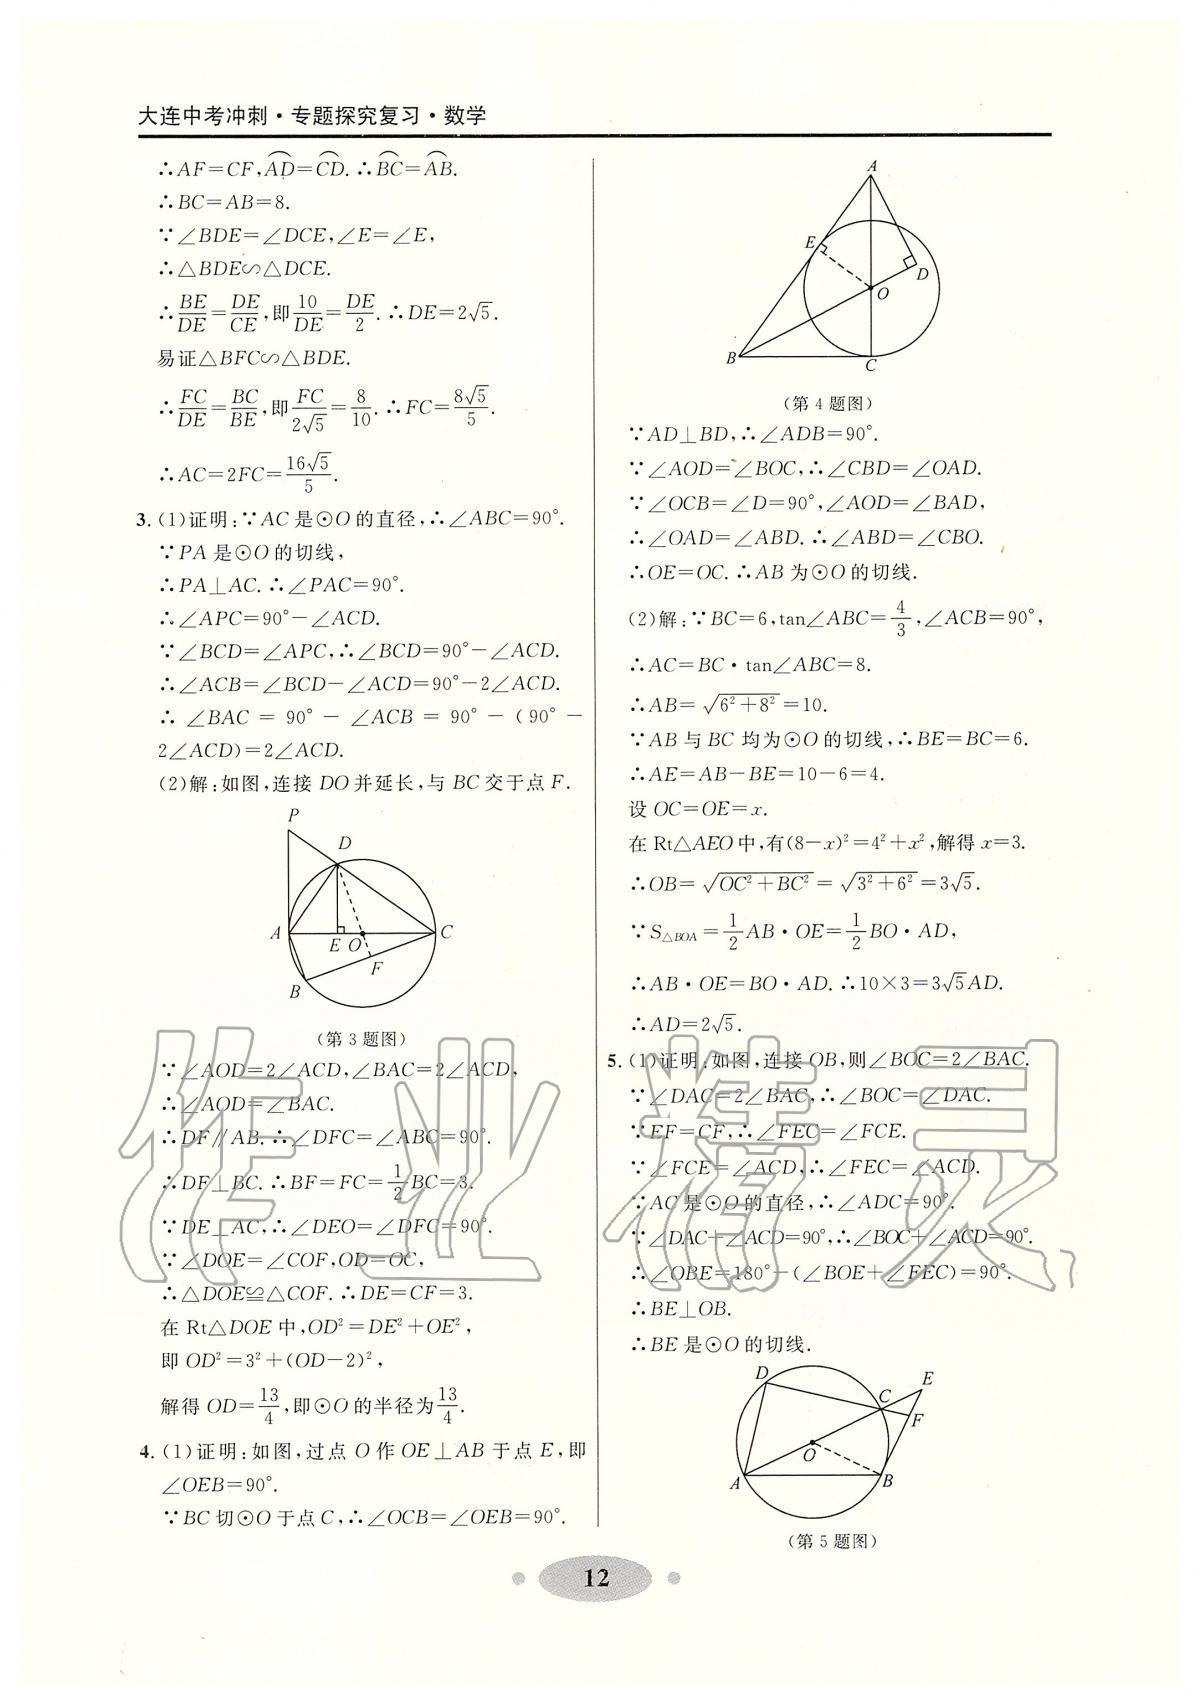 大连中考冲刺·专题探究复习·数学
∴AF=CF,A͡D=C͡D. ∴B͡C=A͡B.
∴BC=AB=8.
∵∠BDE=∠DCE,∠E=∠E,
∴△BDE∽△DCE.
∴BE/DE=DE/CE,即10/DE=DE/2. ∴DE=2√5.
易证△BFC∽△BDE.
∴FC/DE=BC/BE,即FC/2√5=8/10. ∴FC=8√5/5.
∴AC=2FC=16√5/5.
3. (1)证明:∵AC是⊙O的直径,∴∠ABC=90°.
∵PA是⊙O的切线,
∴PA⊥AC. ∴∠PAC=90°.
∴∠APC=90°-∠ACD.
∵∠BCD=∠APC,∴∠BCD=90°-∠ACD.
∴∠ACB=∠BCD-∠ACD=90°-2∠ACD.
∴∠BAC=90°-∠ACB=90°-(90°-
2∠ACD)=2∠ACD.
(2)解:如图,连接DO并延长,与BC交于点F.
P
D
A
E
O
C
F
B
(第3题图)
∵∠AOD=2∠ACD,∠BAC=2∠ACD,
∴∠AOD=∠BAC.
∴DF∥AB. ∴∠DFC=∠ABC=90°.
∴DF⊥BC. ∴BF=FC=1/2BC=3.
∵DE⊥AC,∴∠DEO=∠DFC=90°.
∵∠DOE=∠COF,OD=OC,
∴△DOE≌△COF. ∴DE=CF=3.
在Rt△DOE中,OD²=DE²+OE²,
即OD²=3²+(OD-2)²,
解得OD=13/4,即⊙O的半径为13/4.
4. (1)证明:如图,过点O作OE⊥AB于点E,即
∠OEB=90°.
∵BC切⊙O于点C,∴∠OCB=∠OEB=90°.
A
E
D
O
B
C
(第4题图)
∵AD⊥BD,∴∠ADB=90°.
∵∠AOD=∠BOC,∴∠CBD=∠OAD.
∵∠OCB=∠D=90°,∠AOD=∠BAD,
∴∠OAD=∠ABD. ∴∠ABD=∠CBO.
∴OE=OC. ∴AB为⊙O的切线.
(2)解:∵BC=6,tan∠ABC=4/3,∠ACB=90°,
∴AC=BC·tan∠ABC=8.
∴AB=√(6²+8²)=10.
∵AB与BC均为⊙O的切线,∴BE=BC=6.
∴AE=AB-BE=10-6=4.
设OC=OE=x.
在Rt△AEO中,有(8-x)²=4²+x²,解得x=3.
∴OB=√(OC²+BC²)=√(3²+6²)=3√5.
∵S△BOA=1/2AB·OE=1/2BO·AD,
∴AB·OE=BO·AD. ∴10×3=3√5AD.
∴AD=2√5.
5. (1)证明:如图,连接OB,则∠BOC=2∠BAC.
∵∠DAC=2∠BAC,∴∠BOC=∠DAC.
∵EF=CF,∴∠FEC=∠FCE.
∵∠FCE=∠ACD,∴∠FEC=∠ACD.
∵AC是⊙O的直径,∴∠ADC=90°.
∵∠DAC+∠ACD=90°,∴∠BOC+∠ACD=90°.
∴∠OBE=180°-(∠BOE+∠FEC)=90°.
∴BE⊥OB.
∴BE是⊙O的切线.
D
E
C
F
O
A
B
(第5题图)
12
作业精灵